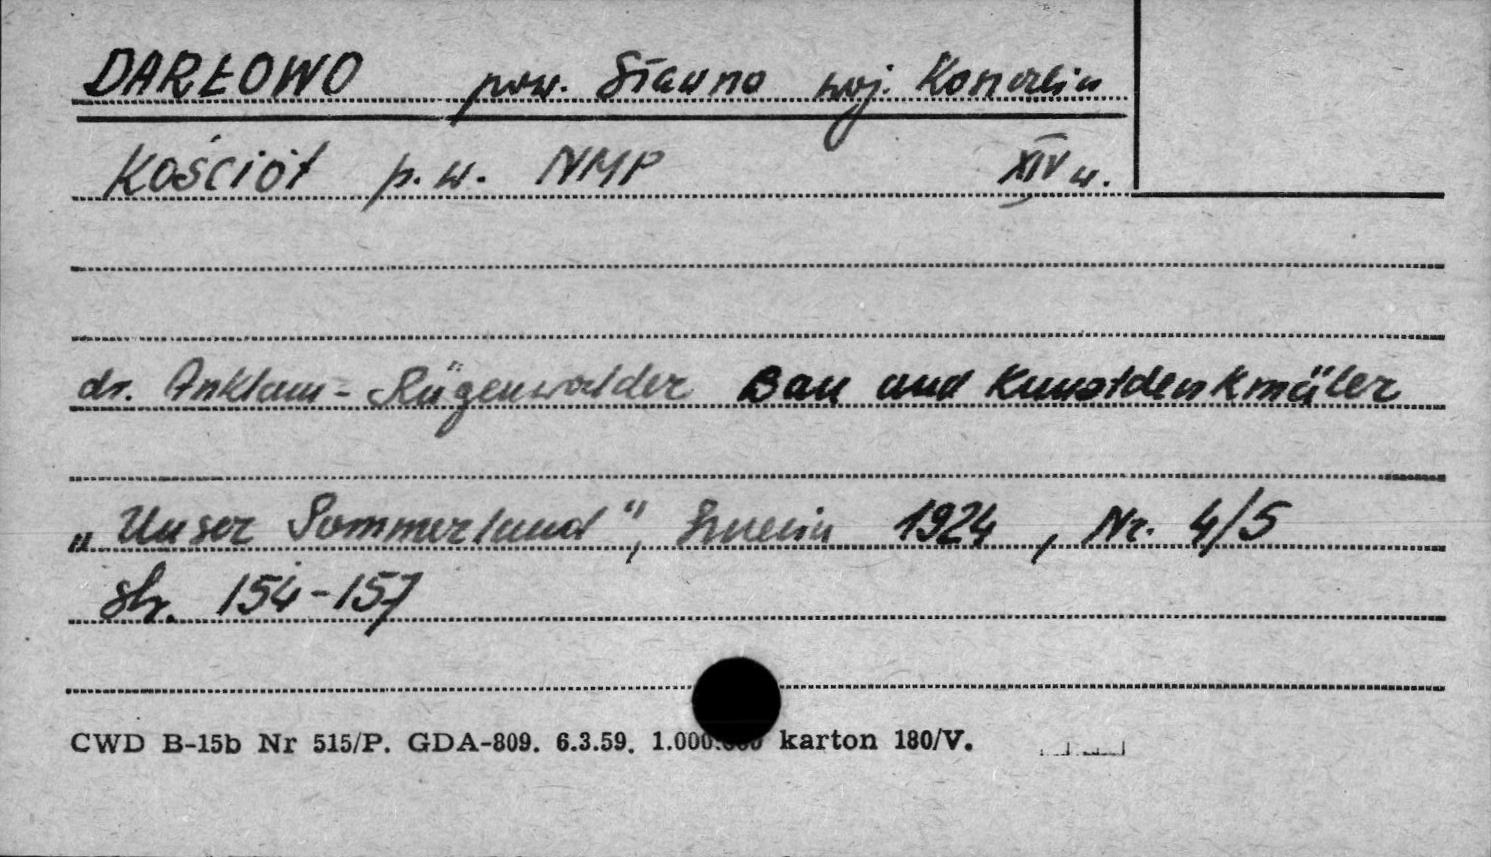 DARŁOWO pow. Sławno woj. Koszalin
Kościół p.w. NMP XIV w.
dr. Anklam - Rügenwalder Bau und Kunstdenkmäler
„Unser Pommerland", 1924, Nr. 4/5
str. 154-157
CWD B-15b Nr 515/P. GDA-809. 6.3.59. 1.000.000 karton 180/V.